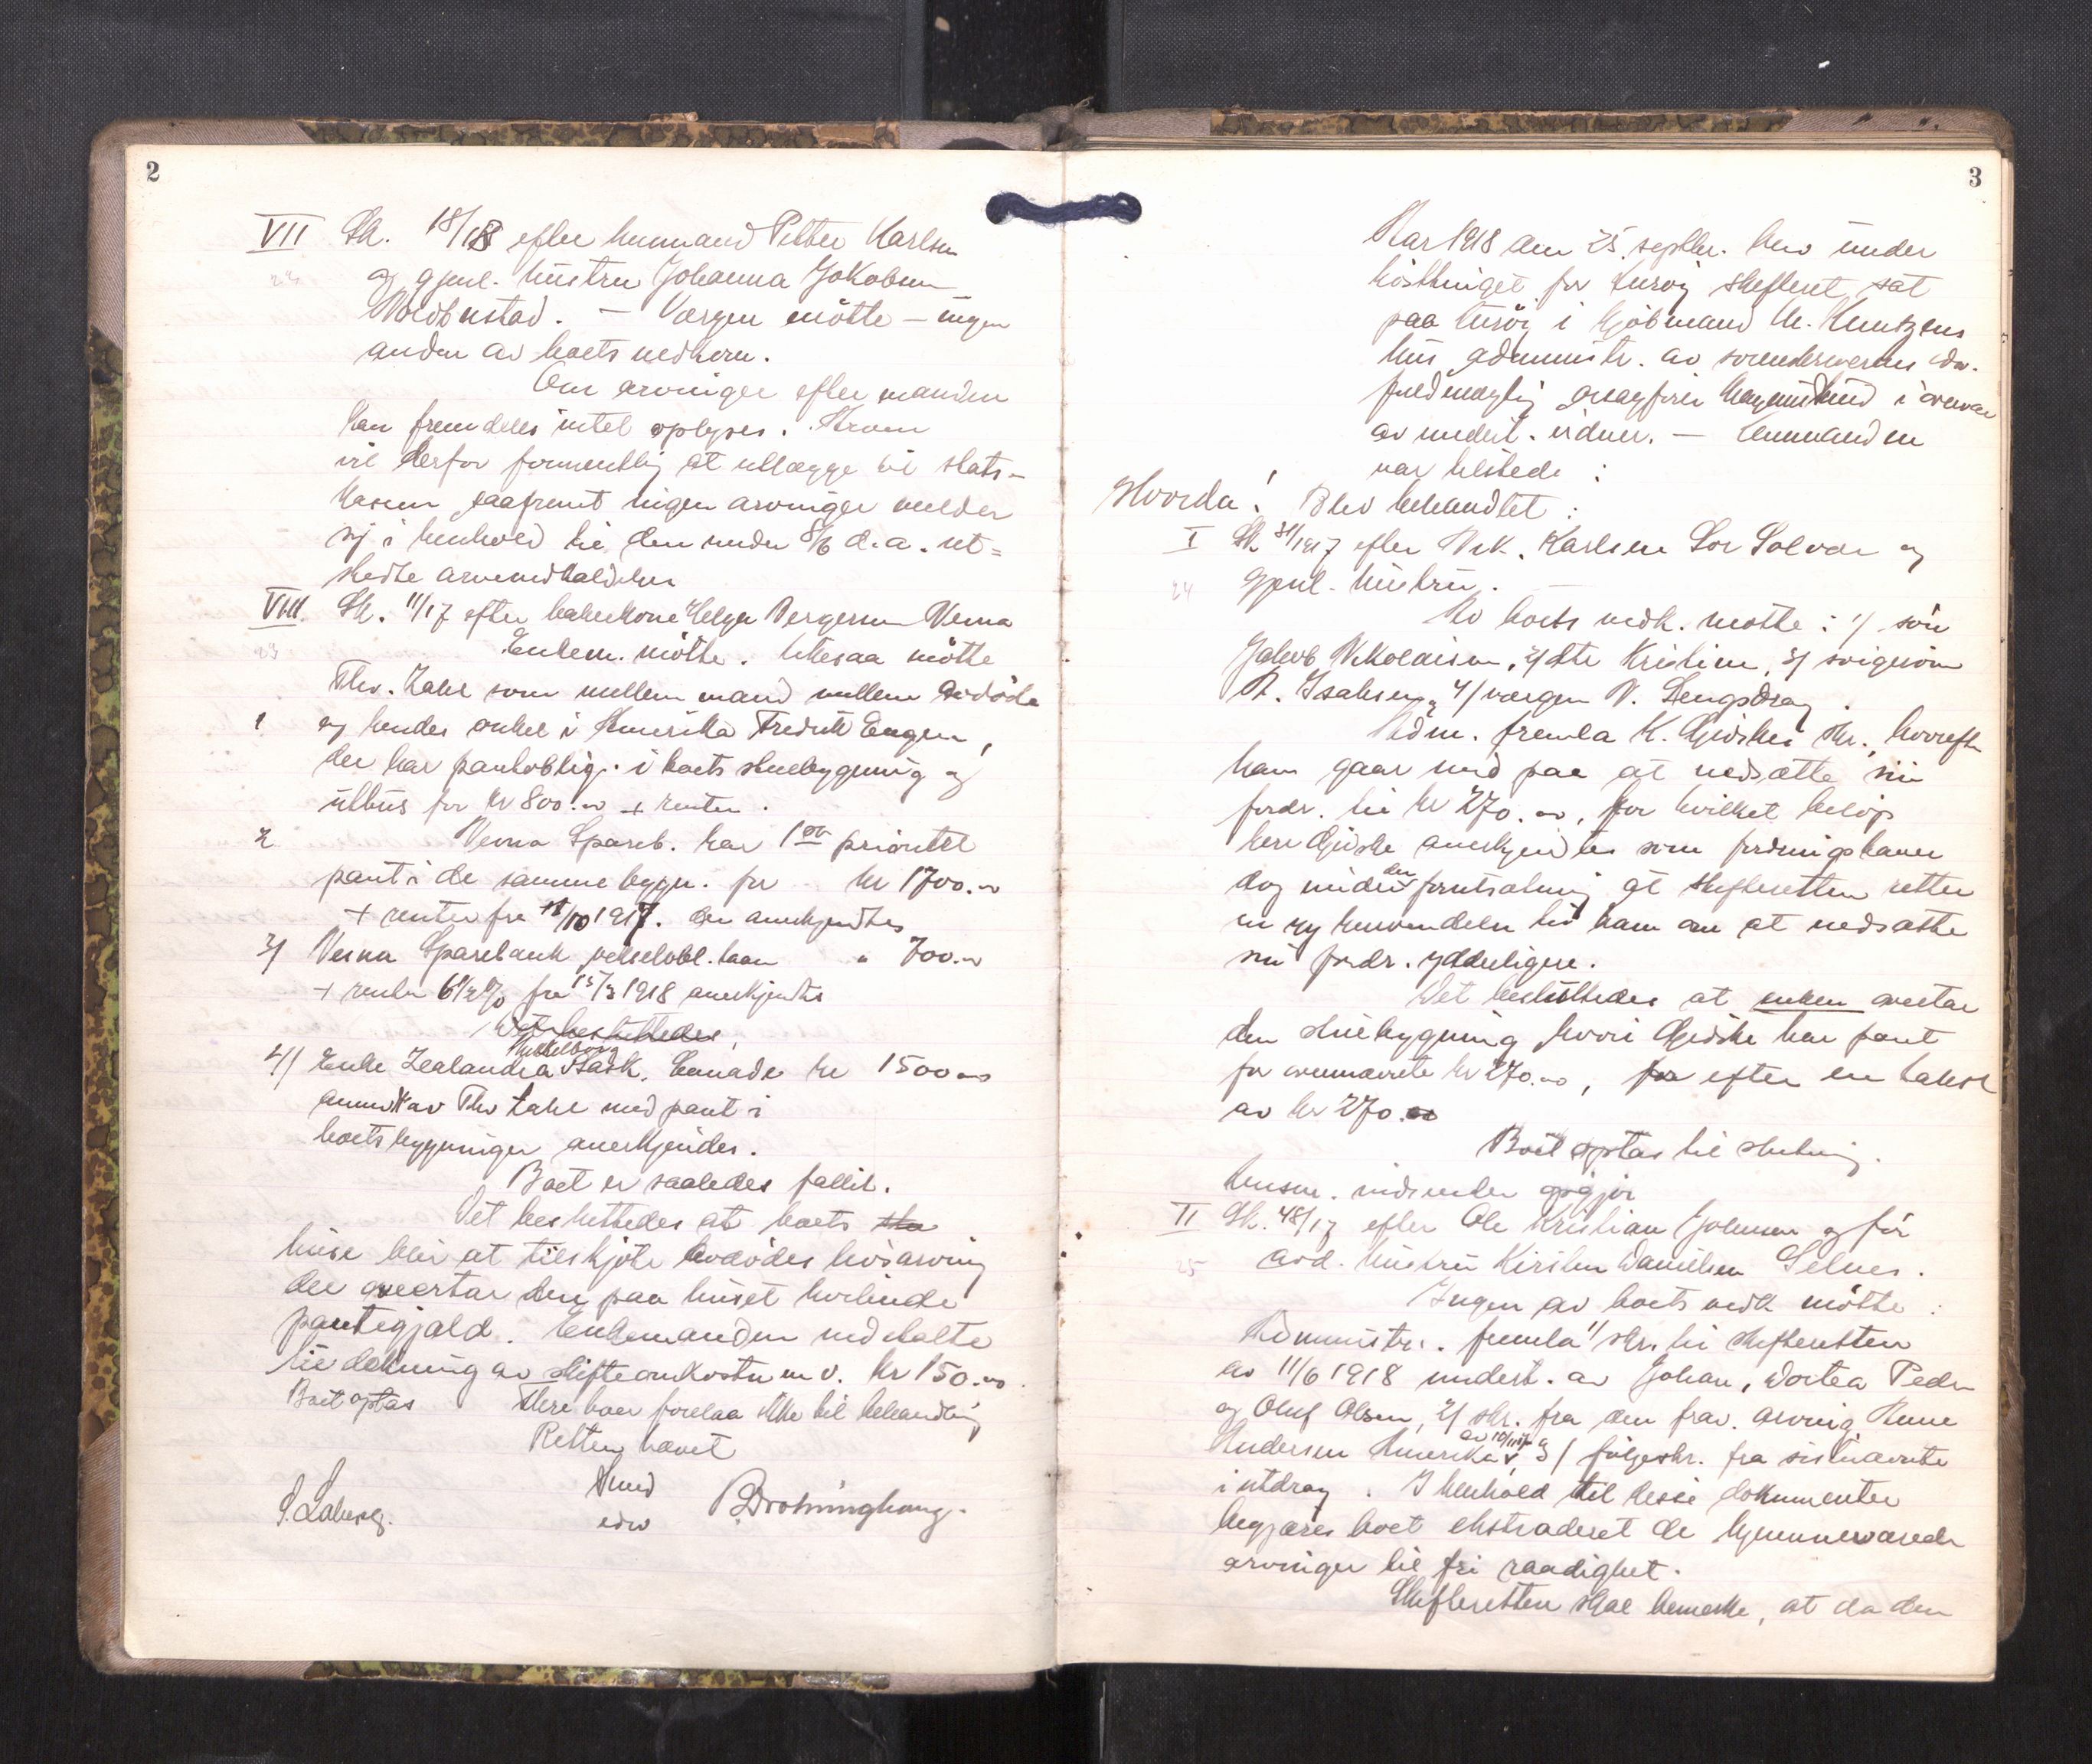 2
VII Sk. 18/18 efter husmand Petter Karlsen
24 og gjenl. hustru Johanna Jakobsen
Nordbustad. — Vergen mötte — ingen
anden av boets vedkom.
Om arvinger efter manden
kan fremdeles intet oplyses. Arven
vil derfor formentlig at utlægge til stats-
kassen saafremt ingen arvinger melder
sig i henhold til den under 8/6 d.a. ut-
stedte
VIII. Sk. 11/17 efter Helga Bergersen Verna
23 Enkem. mötte. Likesaa mötte
Thv. Zahl som mellem mand mellem avdöde
1 og hendes onkel i Amerika Fredrik Eugen,
der har pantoblig. i boets stuebygning og
uthus for kr 800.00 + renter.
2 Verna Spareb. har 1ste prioritet
pant i de samme bygn. for kr 1700.00
+ renter fra 11/10 1917. den anerkjendtes
3/ Verna Sparebank vekselobl. laan " 700.00
+ renter 6 1/2 % fra 15/3 1918 anerkjendtes
Det besluttedes
4/ Enke Zealandia Sask. Canada kr 1500.00
anm. av Thv Zahl med pant i
boets bygninger anerkjendes.
Boet er saaledes fallit.
Det besluttedes at boets
huse blir at tilskjöte avdödes livsarving
der overtar den paa huset heftende
pantegjæld. Enkemanden indbetalte
til dekning av skifteomkostn m.v. kr 150.00.
Boet optas Flere boer forelaa ikke til behandling
Retten hævet
S. Laberg. edsv B. Dronninghaug.
3
Aar 1918 den 25. septbr. blev under
hösttinget for Kurøy skifteret sat
paa Kuröy i kjöbmand
hus administr. av sorenskriverens edsv.
fuldmægtig sagförer i overvær
av undert. vidner. — Lensmanden
var tilstede :
Hvorda! Blev behandlet :
I Sk. 31/1917 efter Nik. Karlsen Sör Solvær og
24 gjenl. hustru.
Av boets vedk. mötte : 1/ sön
Jakob Nikolaisen, 2/ dtr Kristine, 3/ svigersön
R. Isaksen, 4/ vergen N. Lengsdrag.
Adm. fremla K. Gjeskes skr., hvorefter
han gaar med paa at nedsætte sin
fordr. til kr 270.00, for hvilket belöp
herr Gjeske anerkjendtes som fordringshaver
dog under den forutsætning at skifteretten retter
en ny henvendelse til ham om at nedsætte
sin fordr. ydderligere.
Det besluttedes at enken overtar
den stuebygning hvori Gjeske har pant
for ovennævnte kr 270.00, for efter en takst
av kr 270.00
Boet optas til slutning.
Lensm. indsender opgjör
II Sk. 48/17 efter Ole Kristian Johnsen og för
25 avd. hustru Kirsten Danielsen Selnes.
Ingen av boets vedk mötte :
Administr. fremla 1/ skr. til skifteretten
av 11/6 1918 undert. av Johan, Dortea Peder
og Oluf Olsen, 2/ skr. fra den frav. arving Anne
Andersen Amerika av 10/11 17 og 3/ fölgeskr. fra sistnævnte
i utdrag. I henhold til disse dokumenter
begjæres boet ekstraderet de hjemmeværende
arvinger til fri raadighet.
Skifteretten skal bemerke, at da den